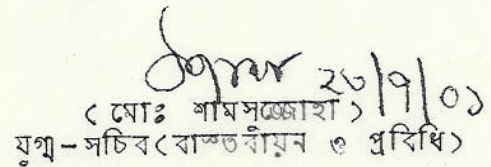 ২৬/৭/০১
( মোঃ শামসুজ্জোহা )
যুগ্ম-সচিব(বাস্তবায়ন ও প্রবিধি)